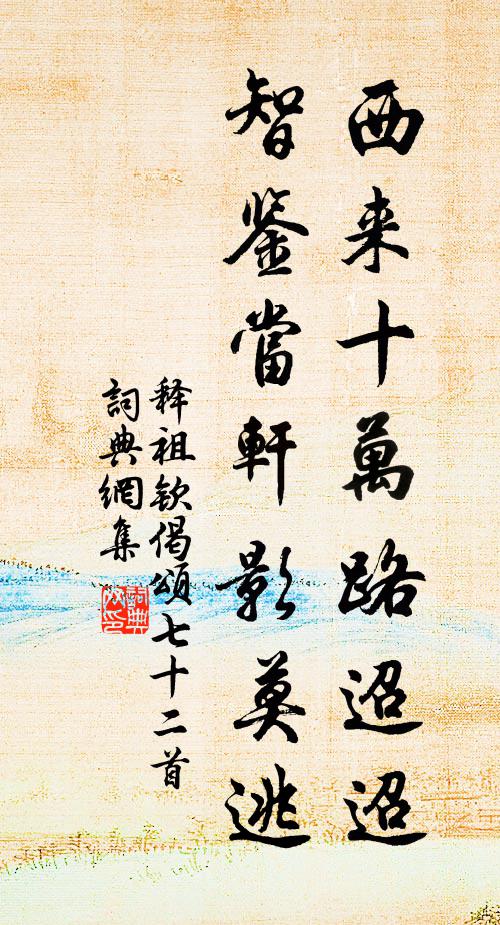 西来十萬路迢迢
智鉴當軒影莫逃
释祖钦偈頌七十二首
詞典網集